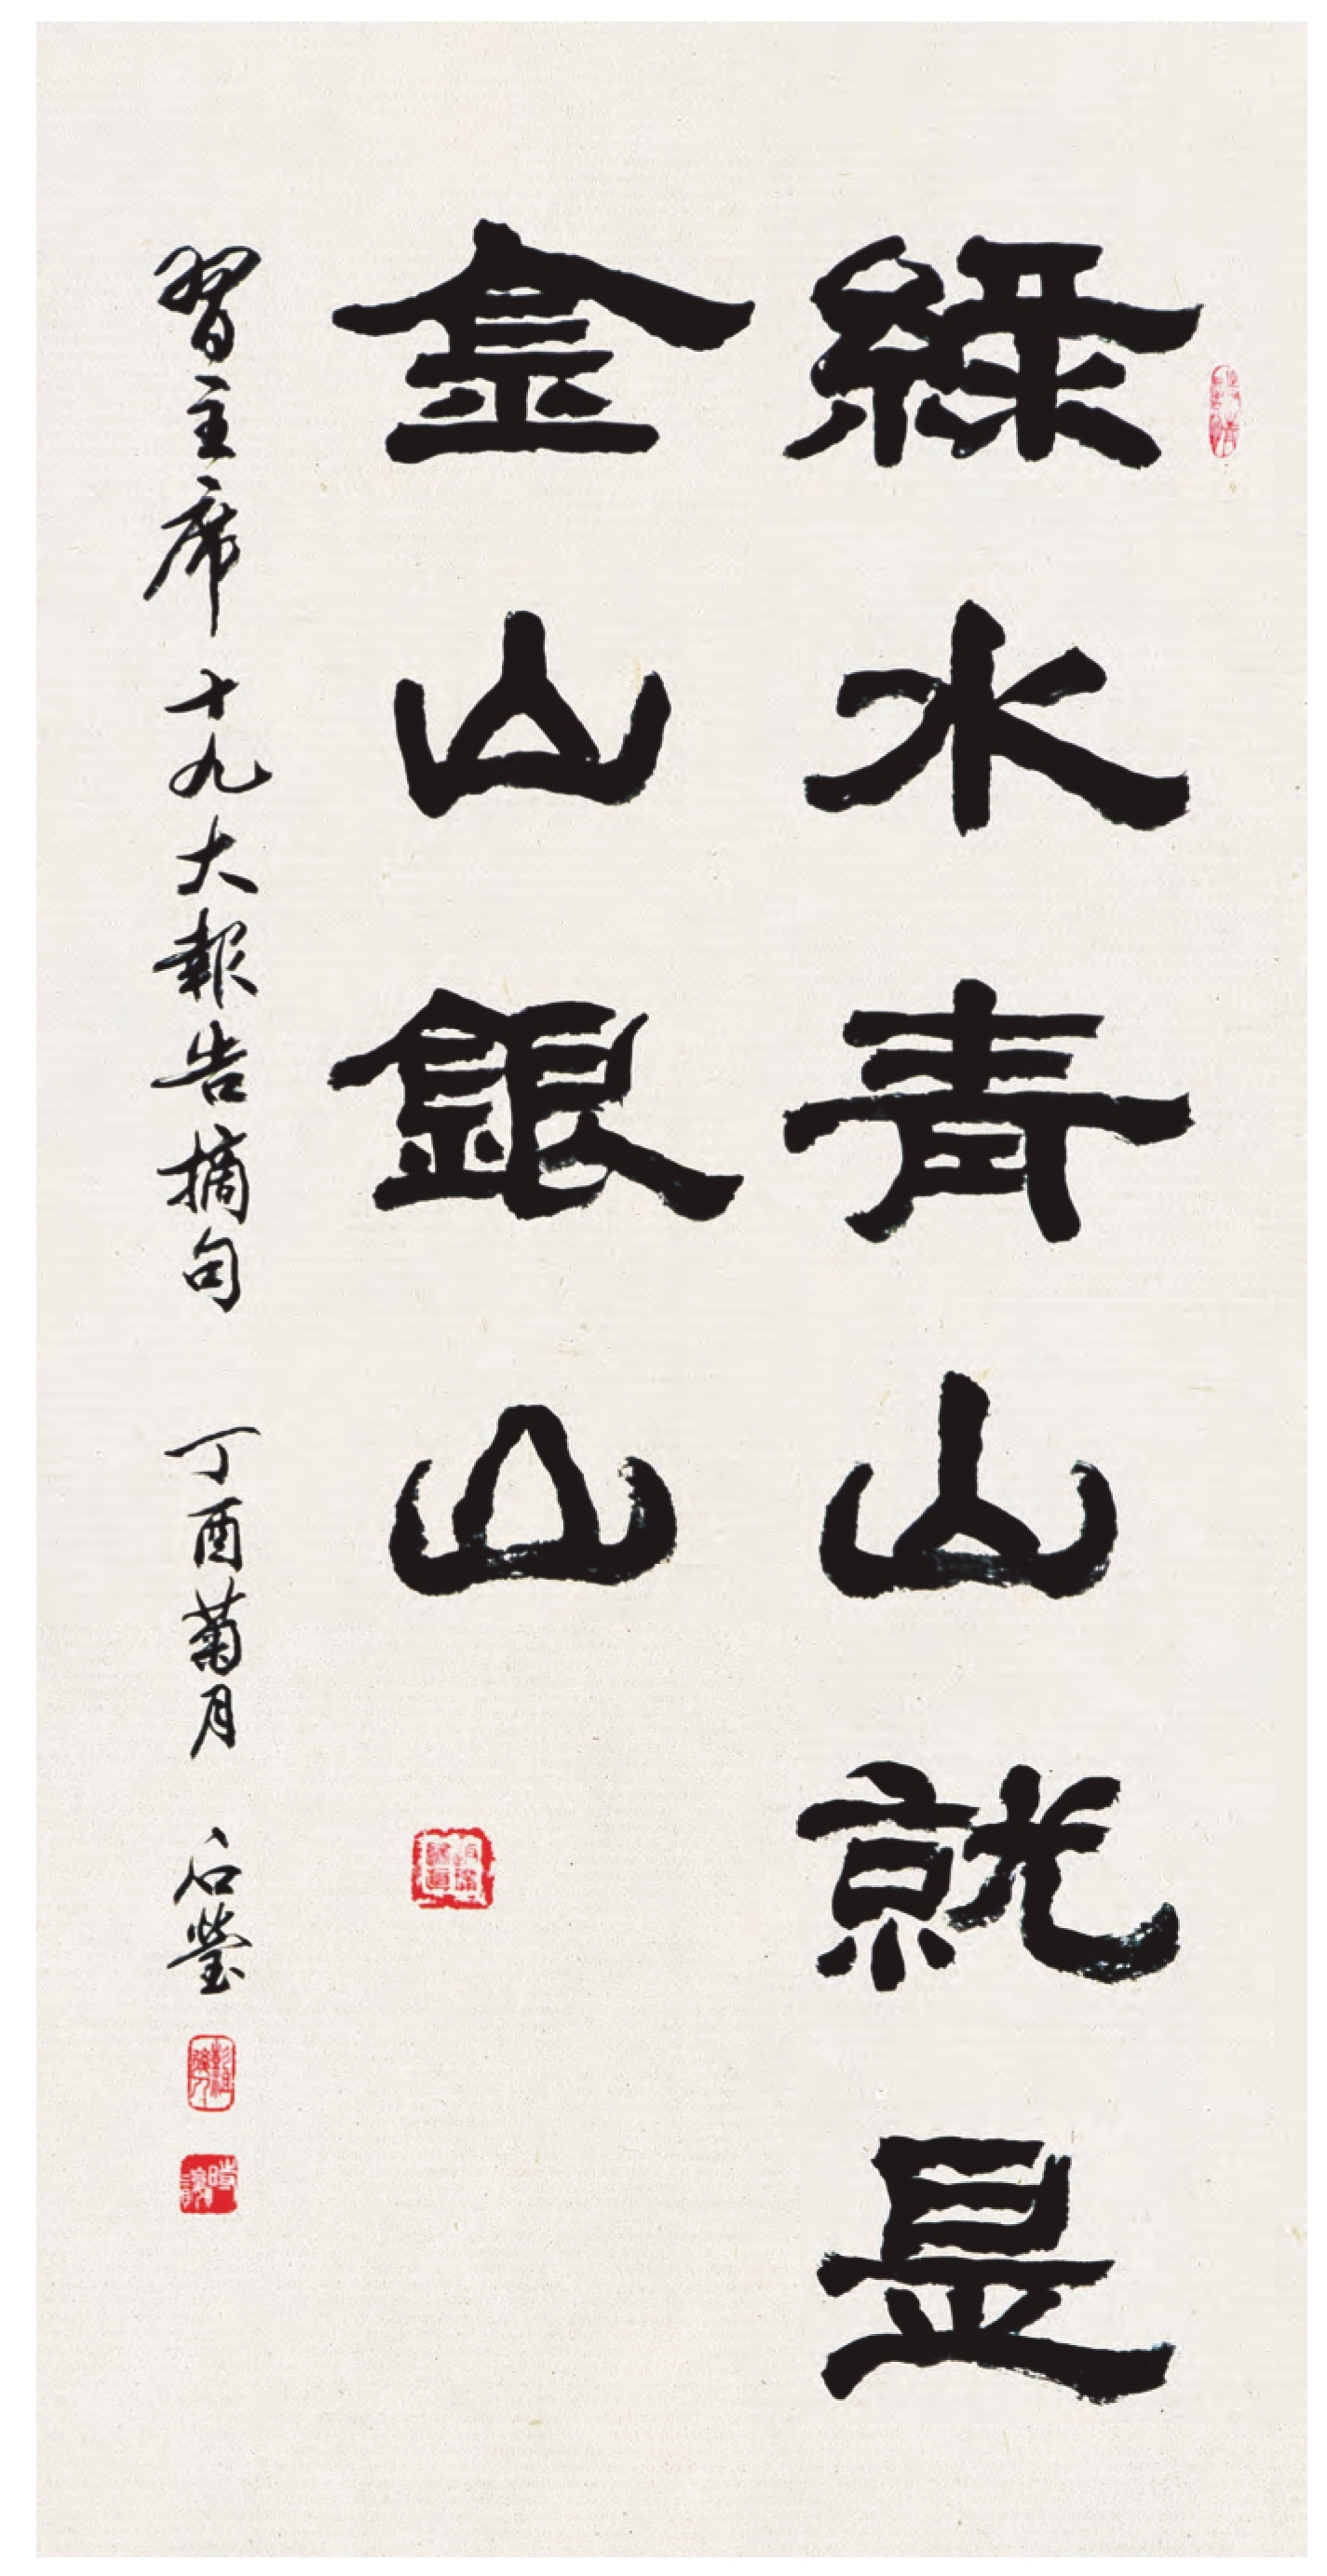 綠水青山就是
金山銀山
習主席十九大報告摘句 丁酉菊月 石瑩